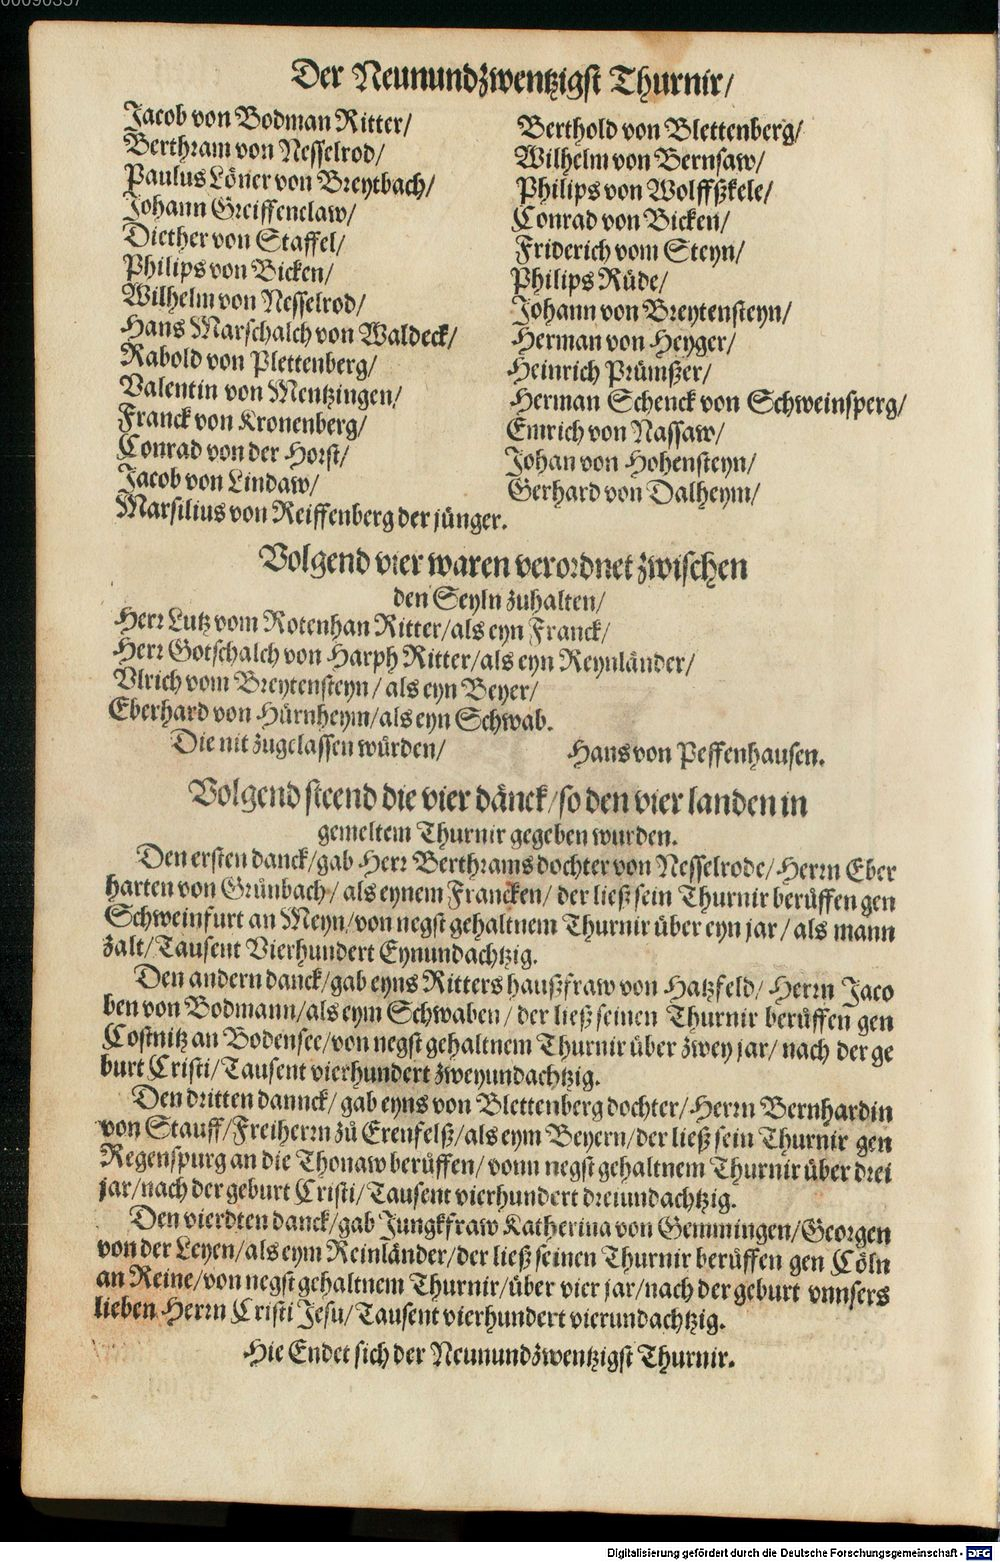 00090357
Der Neunundzwentzigst Thurnir/
Jacob von Bodman Ritter/
Berthram von Nesselrod/
Paulus Löner von Breytbach/
Johann Greiffenclaw/
Diether von Staffel/
Philips von Bicken/
Wilhelm von Nesselrod/
Hans Marschalch von Waldeck/
Rabold von Plettenberg/
Valentin von Mentzingen/
Franck von Kronenberg/
Conrad von der Horst/
Jacob von Lindaw/
Marsilius von Reiffenberg der jünger.
Berthold von Blettenberg/
Wilhelm von Bernsaw/
Philips von Wolffßkele/
Conrad von Bicken/
Friderich vom Steyn/
Philips Rüde/
Johann von Breytensteyn/
Herman von Heyger/
Heinrich Prümßer/
Herman Schenck von Schweinsperg/
Emrich von Nassaw/
Johan von Hohensteyn/
Gerhard von Dalheym/
Volgend vier waren verordnet zwischen
den Seyln zuhalten/
Herr Lutz vom Rotenhan Ritter/als eyn Franck/
Herr Gotschalch von Harph Ritter/als eyn Reynländer/
Vlrich vom Breytensteyn/als eyn Beyer/
Eberhard von Hürnheym/als eyn Schwab.
Die nit zugelassen würden/ Hans von Peffenhausen.
Volgend steend die vier dänck/so den vier landen in
gemeltem Thurnir gegeben wurden.
Den ersten danck/gab Herr Berthrams dochter von Nesselrode/Herrn Eber
harten von Grünbach/als eynem Francken/der ließ sein Thurnir berüffen gen
Schweinfurt an Meyn/von negst gehaltnem Thurnir über eyn jar/als mann
zalt/Tausent Vierhundert Eynundachtzig.
Den andern danck/gab eyns Ritters haußfraw von Hatzfeld/Herrn Jaco
ben von Bodmann/als eym Schwaben/der ließ seinen Thurnir berüffen gen
Costnitz an Bodensee/von negst gehaltnem Thurnir über zwey jar/nach der ge
burt Cristi/Tausent vierhundert zweyundachtzig.
Den dritten dannck/gab eyns von Blettenberg dochter/Herrn Bernhardin
von Stauff/Freiherrn zů Erenfelß/als eym Beyern/der ließ sein Thurnir gen
Regenspurg an die Thonaw berüffen/vonn negst gehaltnem Thurnir über drei
jar/nach der geburt Cristi/Tausent vierhundert dreiundachtzig.
Den vierdten danck/gab Jungkfraw Katherina von Gemmingen/Georgen
von der Leyen/als eym Reinländer/der ließ seinen Thurnir berüffen gen Cöln
an Reine/von negst gehaltnem Thurnir/über vier jar/nach der geburt vnnsers
lieben Herrn Cristi Jesu/Tausent vierhundert vierundachtzig.
Hie Endet sich der Neunundzwentzigst Thurnir.
Digitalisierung gefördert durch die Deutsche Forschungsgemeinschaft - DFG